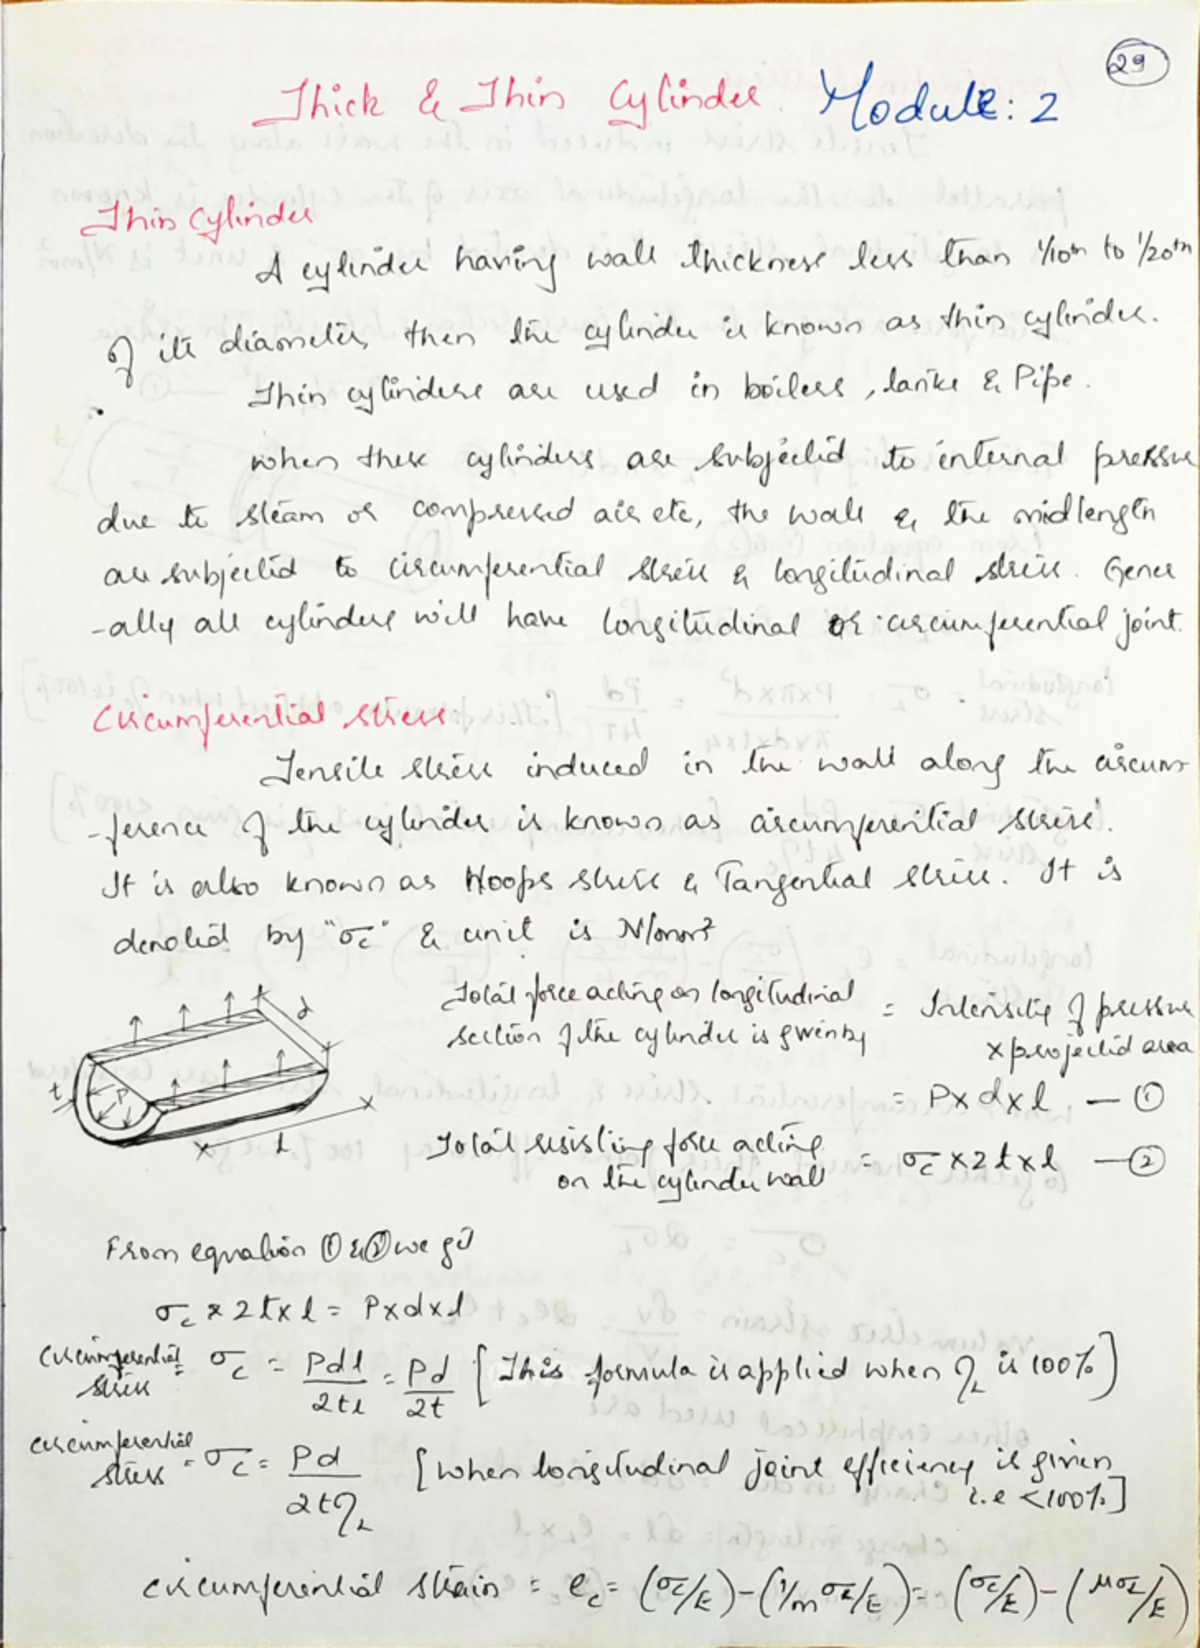 29
Thick & Thin Cylinder. Module: 2
Thin Cylinder
A cylinder having wall thickness less than 1/10th to 1/20th
of its diameter, then the cylinder is known as thin cylinder.
Thin cylinders are used in boilers, tanks & Pipe.
when these cylinders are subjected to internal pressure
due to steam or compressed air etc, the wall & the midlength
are subjected to circumferential stress & longitudinal stress. Gener
-ally all cylinders will have longitudinal or circumferential joint.
Circumferential stress.
Tensile stress induced in the wall along the circum-
-ference of the cylinder is known as circumferential stress.
It is also known as Hoops stress & Tangential stress. It is
denoted by "σc" & unit is N/mm²
Total force acting on longitudinal section of the cylinder is given by = Intensity of pressure x projected area
= P x d x l — ①
Total resisting force acting on the cylinder wall = σc x 2t x l — ②
t P d l
From equation ① & ② we get
σc x 2t x l = P x d x l
Circumferential stress = σc = Pdl/2tl = Pd/2t [This formula is applied when ηL is 100%]
circumferential stress = σc = Pd/2tηL [when longitudinal joint efficiency is given i.e <100%]
circumferential strain = ec = (σc/E) - (1/m σL/E) = (σc/E) - (μσL/E)